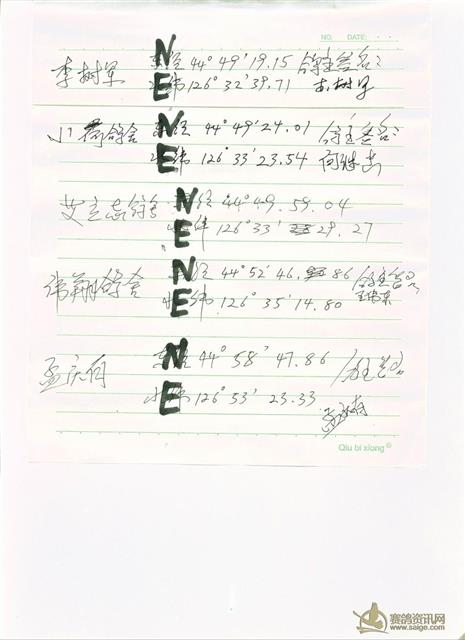 NO. DATE:
李树军 N 东经 44°49'19.15 鸽主签名:
E 北纬 126°32'39.71 李树军
小 鸽舍 N 东经 44°49'24.01 鸽主签名:
E 北纬 126°33'23.54
艾立志鸽舍 N 东经 44°49.59.04
E 北纬 126°33' 29.27
鸽舍 N 东经 44°52'46. 86 鸽主签名
E 北纬 126°35'14.80
孟庆 N 东经 44°58'47.86 鸽主签名
E 北纬 126°53'23.33
Qiu bi xiong
赛鸽资讯网
www.saige.com